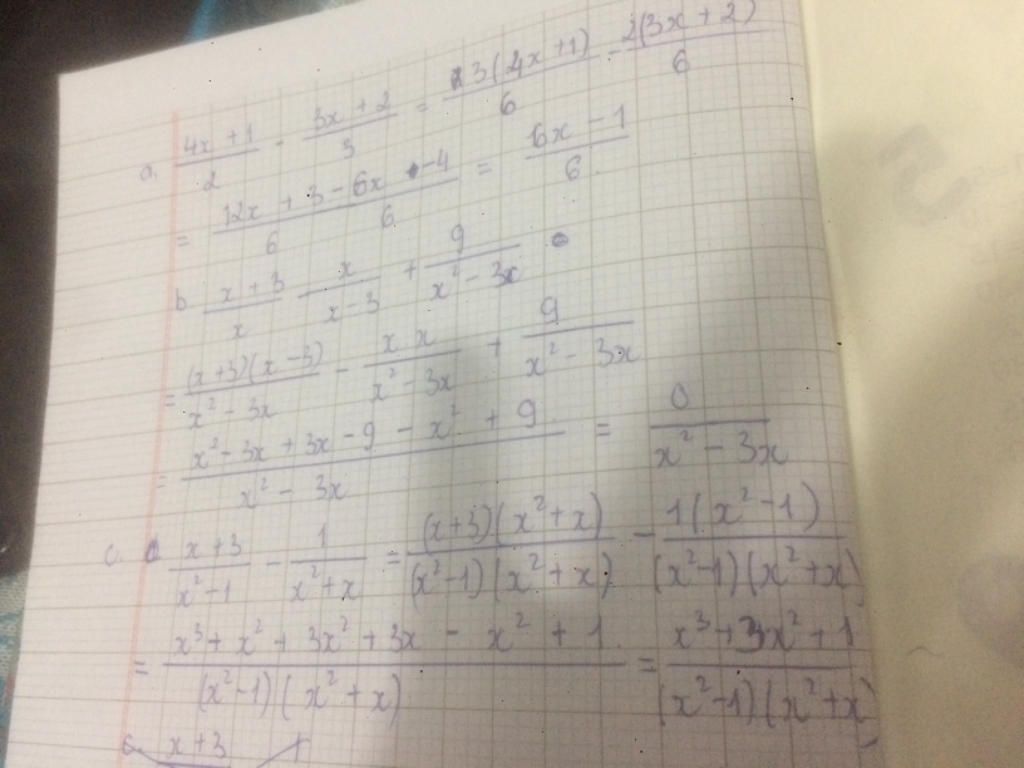 a, (4x + 1)/2 - (3x + 2)/3 = 3(4x + 1)/6 - 2(3x + 2)/6
= (12x + 3 - 6x - 4)/6 = (6x - 1)/6
b (x + 3)/x - x/(x - 3) + 9/(x² - 3x)
= (x + 3)(x - 3)/(x² - 3x) - x x/(x² - 3x) + 9/(x² - 3x)
= (x² - 3x + 3x - 9 - x² + 9)/(x² - 3x) = 0/(x² - 3x)
c. (x + 3)/(x² - 1) - 1/(x² + x) = (x+3)(x² + x)/(x² - 1)(x² + x) - 1(x² - 1)/(x² - 1)(x² + x)
= (x³ + x² + 3x² + 3x - x² + 1)/(x² - 1)(x² + x) = (x³ + 3x² + 1)/(x² - 1)(x² + x)
x + 3